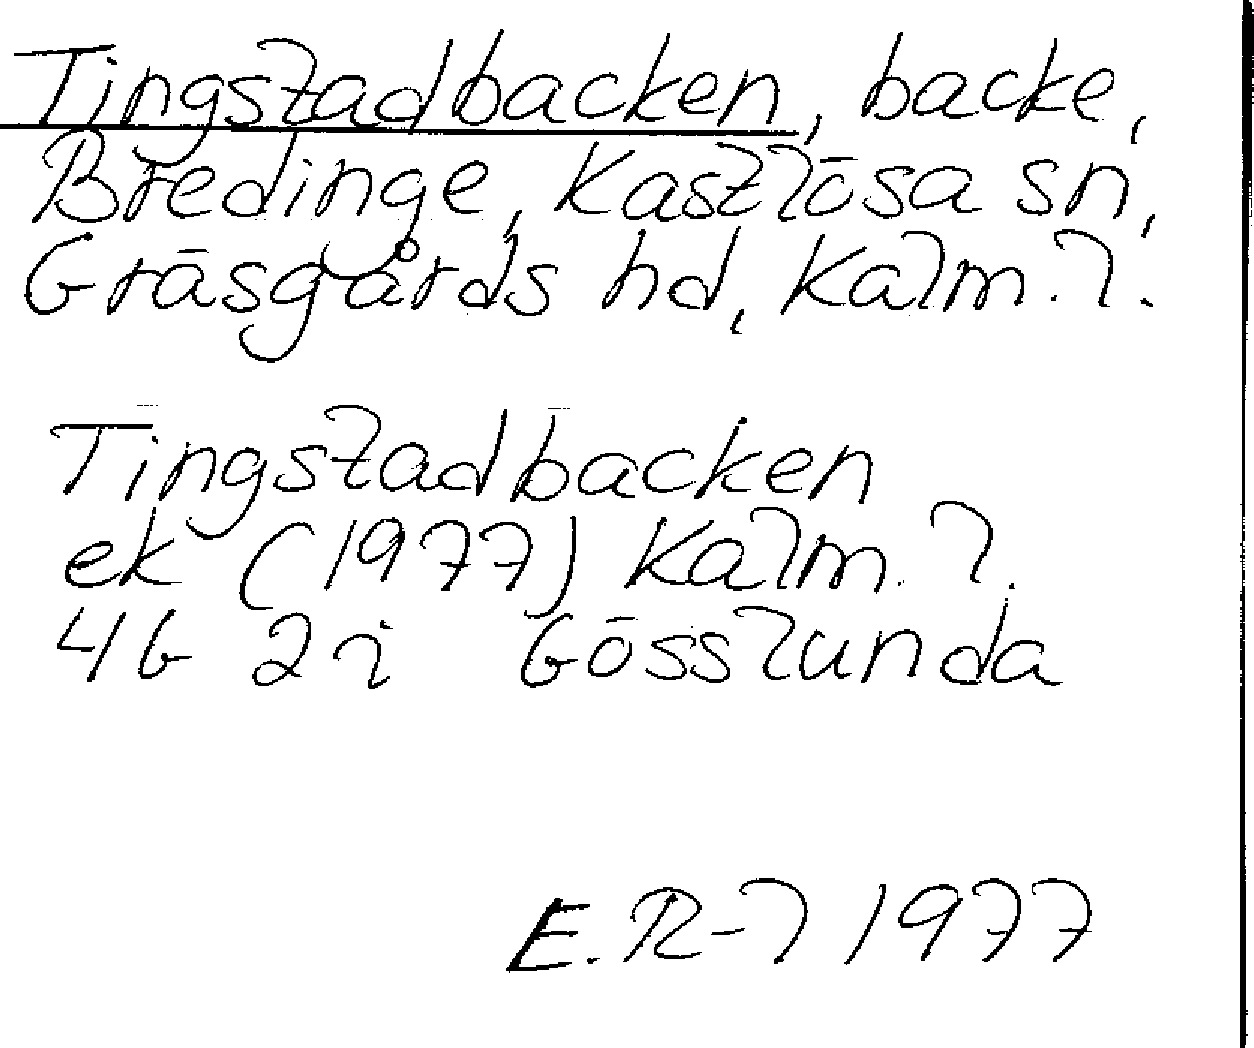 Tingstadbacken, backe,
Bredinge, Kastlösa sn,
Gräsgårds hd, Kalm. l.
Tingstadbacken
ek (1977) Kalm. l.
4G 2i Gösslunda
E. R-l 1977